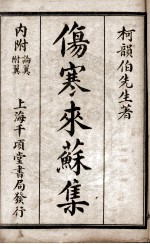 柯韻伯先生著
傷寒來蘇集
內附論翼
附翼
上海千頃堂書局發行